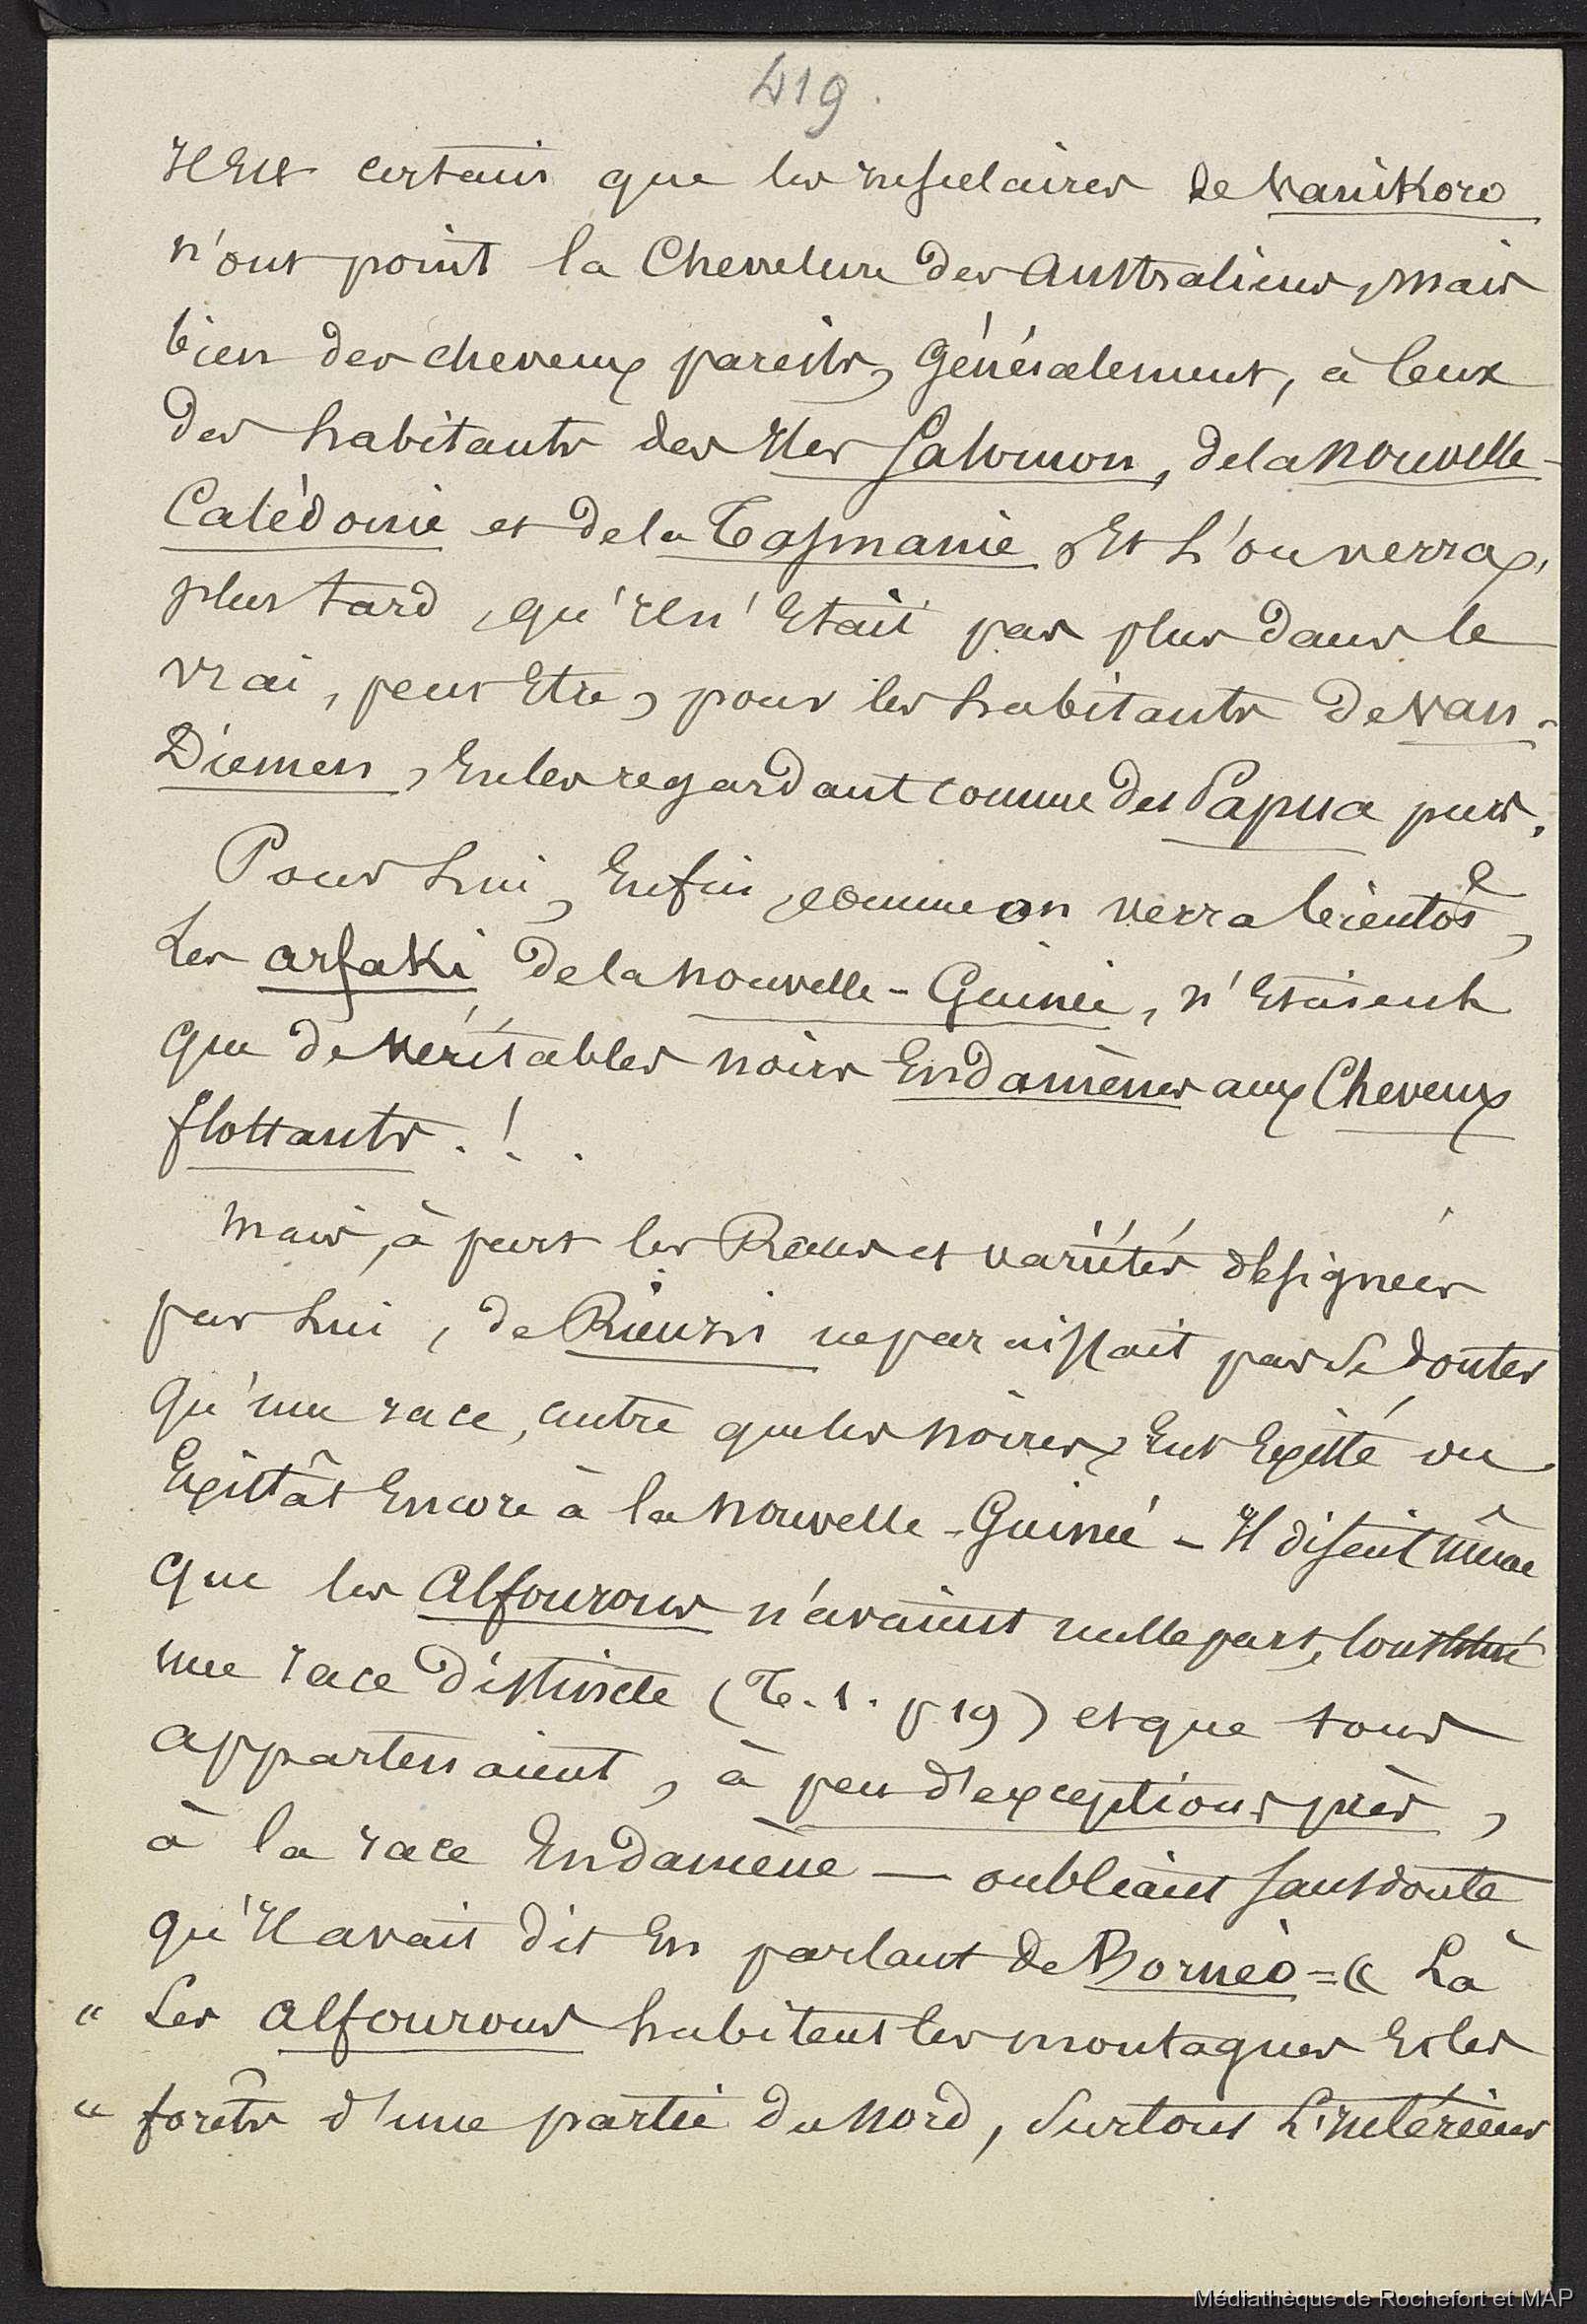 419.
Il Est certain que les Insulaires de Vanikoro
n'ont point la Chevelure des Australiens, mais
bien des cheveux pareils, Généralement, à Ceux
des habitants des Iles Salomon, de la Nouvelle-
Calédonie et de la Tasmanie. Et L'on verra,
plus tard, qu'Il n'Etait pas plus dans le
vrai, peut Etre, pour les habitants de Van-
Diemen, En les regardant comme des Papua purs.
Pour Lui, Enfin, comme on verra bientôt,
Les arfaki de la Nouvelle-Guinée, n'Etaient
que de véritables noirs Endamènes aux Cheveux
flottants. ! .
Mais, à part les Races et variétés désignées
par Lui, de Rienzi ne paraissait pas se douter
qu'une race, autre que les Noires, Eut Existé ou
Existât Encore à la Nouvelle-Guinée - Il disait même
que les Alfourous n'avaient nulle part, Constitué
une race distincte (T. 1. p 19) et que tous
appartenaient, à peu d'exceptions près,
à la race Endamène — oubliant sans doute
qu'Il avait dit En parlant de Bornéo = « Là
" Les Alfourous habitent les montagnes Et les
" forêts d'une partie du Nord, Surtout L'Intérieur
Médiathèque de Rochefort et MAP